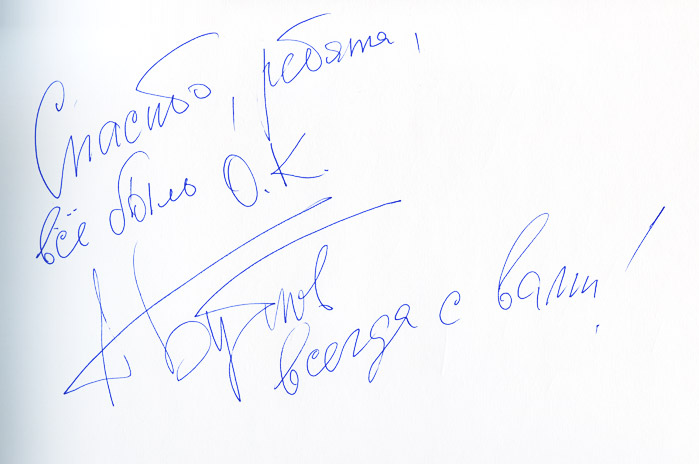 Спасибо, ребята,
всё было О.К.
всегда с вами!